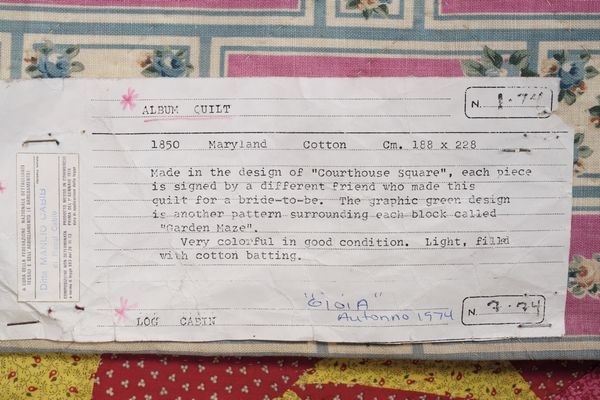 ALBUM QUILT
N. 1-74
1850 Maryland Cotton Cm. 188 x 228
Made in the design of "Courthouse Square", each piece
is signed by a different friend who made this
quilt for a bride-to-be. The graphic green design
is another pattern surrounding each block called
"Garden Maze".
Very colorful in good condition. Light, filled
with cotton batting.
"GIOIA"
Autonno 1974
LOG CABIN
N. 2-74
Ditta MANLIO CABIB